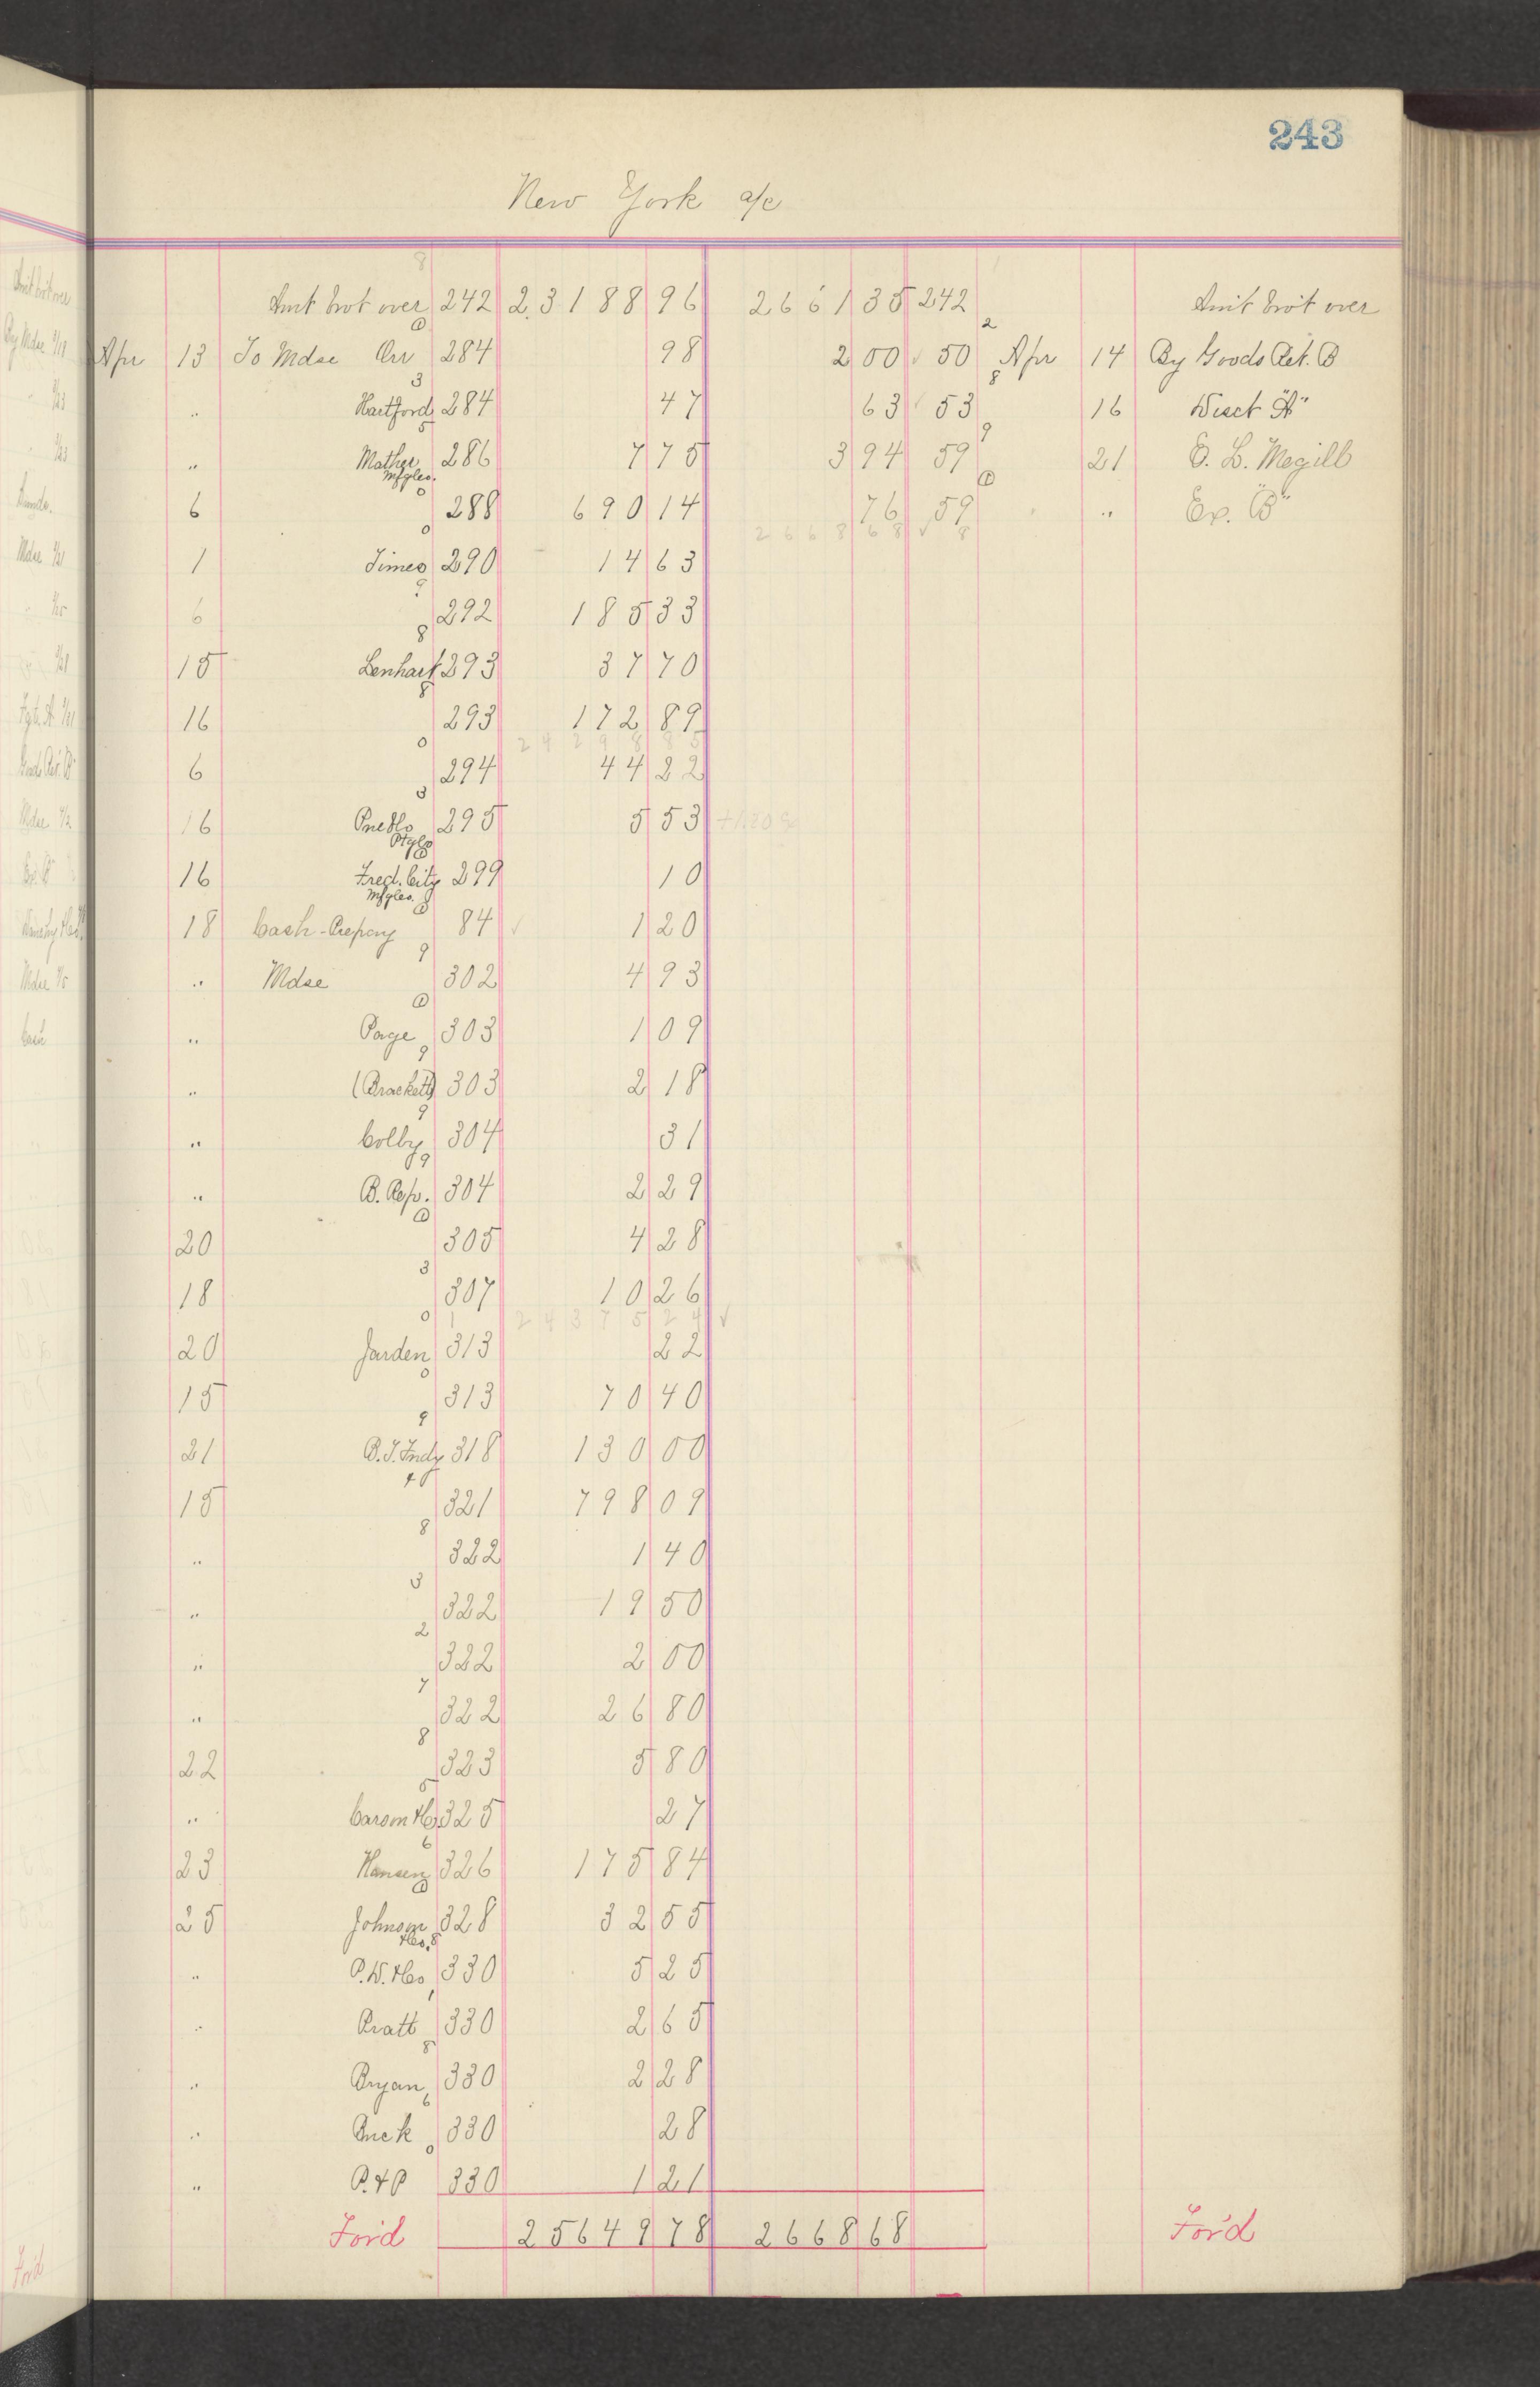 243
New York a/c
Amt brot over 242 23188 96 2661 35 242 Amt brot over
Apr 13 To Mdse Orr 284 98 2 00 50 Apr 14 By Goods Ret. B
" Hartford 284 47 63 53 16 Disct "A"
" Mather Mfg Co. 286 7 75 3 94 59 21 E. L. Megill
6 288 690 14 76 59 " Ex. "B"
2668 68
1 Times 290 14 63
6 292 185 33
15 Lenhart 293 37 70
16 293 172 89
24298 85
6 294 44 22
16 Pueblo 295 5 53
16 Fred. City Mfg Co. 299 10
18 Cash - 84 1 20
" Mdse 302 4 93
" Page 303 1 09
" (Brackett) 303 2 18
" Colby 304 31
" B. Rep. 304 2 29
20 305 4 28
18 307 10 26
24375 24
20 Jarden 313 22
15 313 70 40
21 318 130 00
15 321 798 09
" 322 1 40
" 322 19 50
" 322 2 00
" 322 26 80
22 323 5 80
" Carson & Co. 325 27
23 Hansen 326 175 84
25 Johnson & Co. 328 32 55
" P.W. & Co 330 5 25
" Pratt 330 2 65
" Bryan 330 2 28
" Buck 330 28
" P. & P 330 1 21
For'd 25649 78 2668 68 For'd